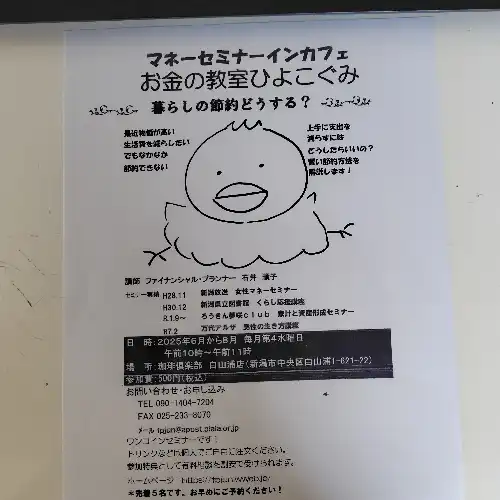 マネーセミナーインカフェ
お金の教室ひよこぐみ
暮らしの節約どうする?
最近物価が高い
生活費を減らしたい
でもなかなか
節約できない
上手に支出を
減らすには
どうしたらいいの?
賢い節約方法を
解説します!
講師 ファイナンシャル・プランナー 石井 順子
セミナー実績 H28.11 新潟放送 女性マネーセミナー
H30.12 新潟県立図書館 くらし応援講座
R.1.9~ ろうきん夢咲club 家計と資産形成セミナー
R7.2 万代アルザ 男性の生き方講座
日 時:2025年6月から8月 毎月第4水曜日
午前10時~午前11時
場 所:珈琲倶楽部 白山浦店(新潟市中央区白山浦1-621-22)
参加費:500円(税込)
お問い合わせ・お申し込み
TEL 090-1404-7204
FAX 025-233-8070
メール fpjun@apost.plala.or.jp
ワンコインセミナーです!
ドリンクなどは個人でご自由に注文ください。
参加特典として有料相談を割安で受けられます。
ホームページ
*先着5名です。お早めにご予約ください!